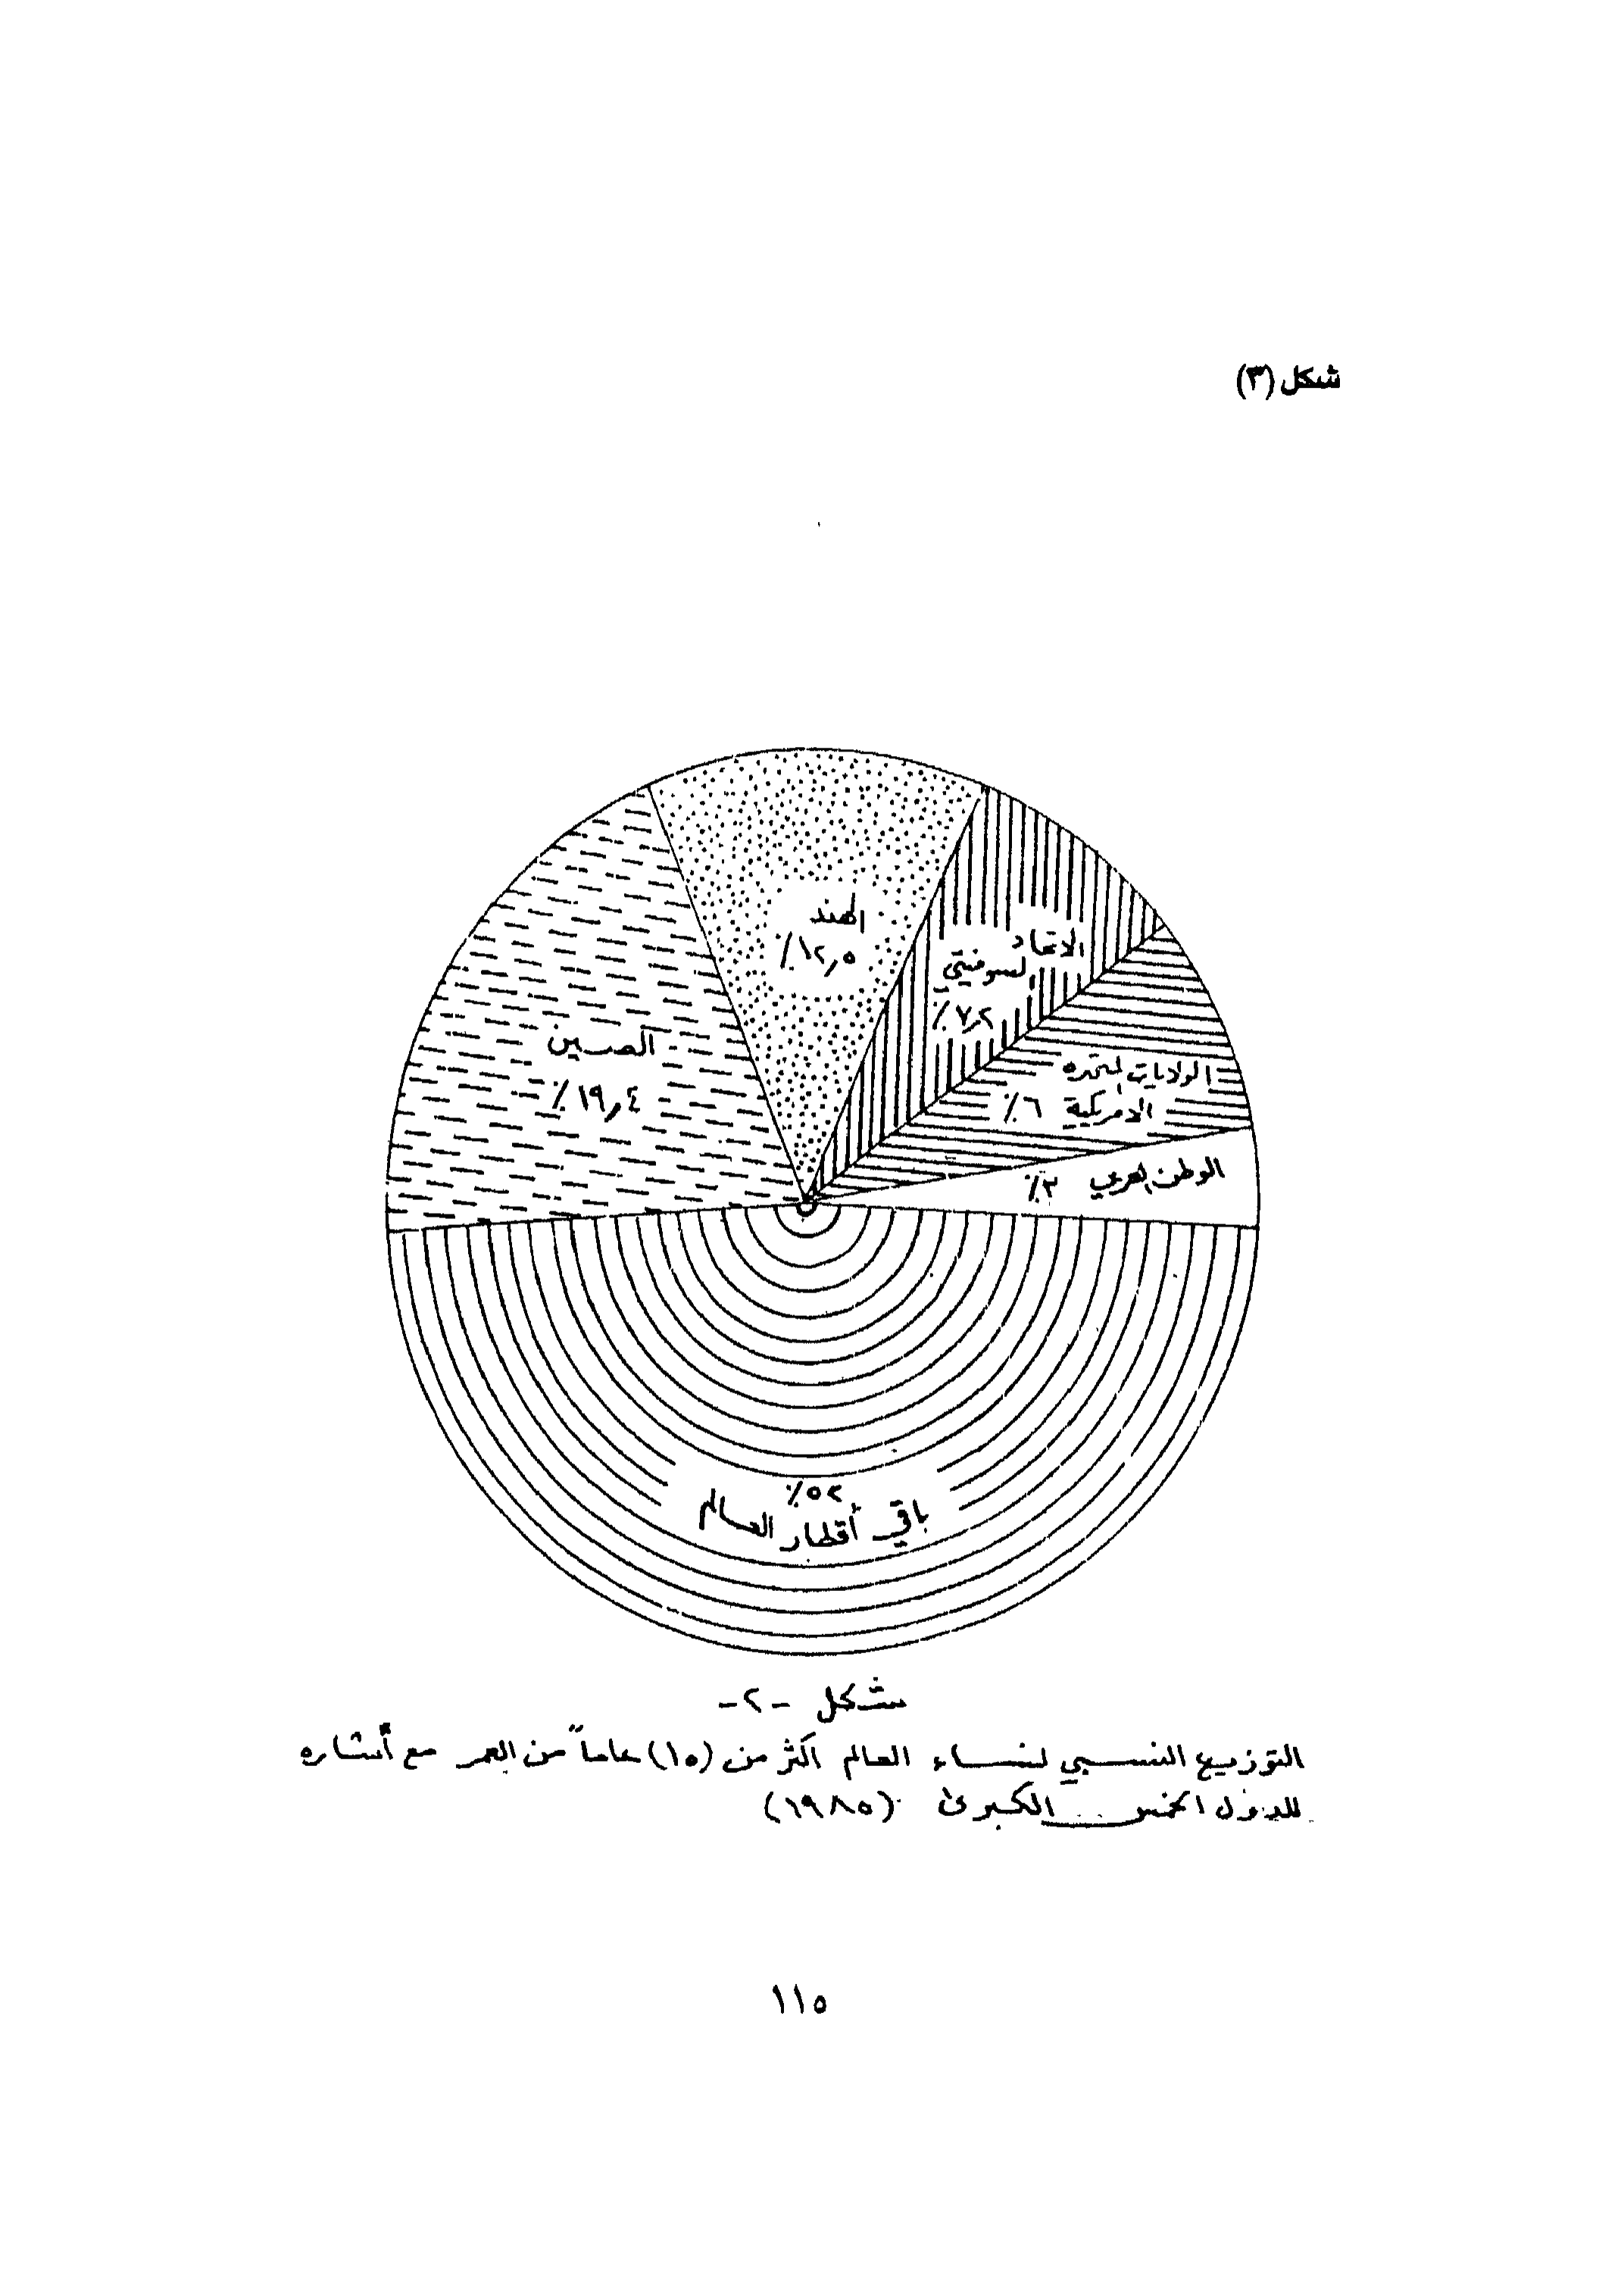 شكل (٣)
الهند
٪١٢,٥
الاتحاد
السوفيتي
٪٧,٢
الصين
٪١٩,٤
الولايات المتحده
الامريكية ٪٦
الوطن العربي ٪٣
٪٥٢
باقي أقطار العالم
شكل -٢-
التوزيع النسبي لنساء العالم اكثر من (١٥) عاماً من العمر مع أشاره
للدول الخمس الكبرى (١٩٨٥)
١١٥